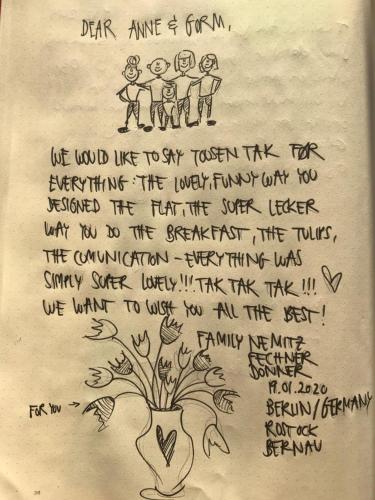 DEAR ANNE & GORM,
WE WOULD LIKE TO SAY TOUSEN TAK FØR
EVERYTHING: THE LOVELY, FUNNY WAY YOU
DESIGNED THE FLAT, THE SUPER LECKER
WAY YOU DO THE BREAKFAST, THE TULIPS,
THE COMUNICATION - EVERYTHING WAS
SIMPLY SUPER LOVELY!!! TAK TAK TAK!!!
WE WANT TO WISH YOU ALL THE BEST!
FAMILY NEMITZ
FECHNER
DONNER
19.01.2020
FOR YOU →
BERLIN/GERMANY
ROSTOCK
BERNAU